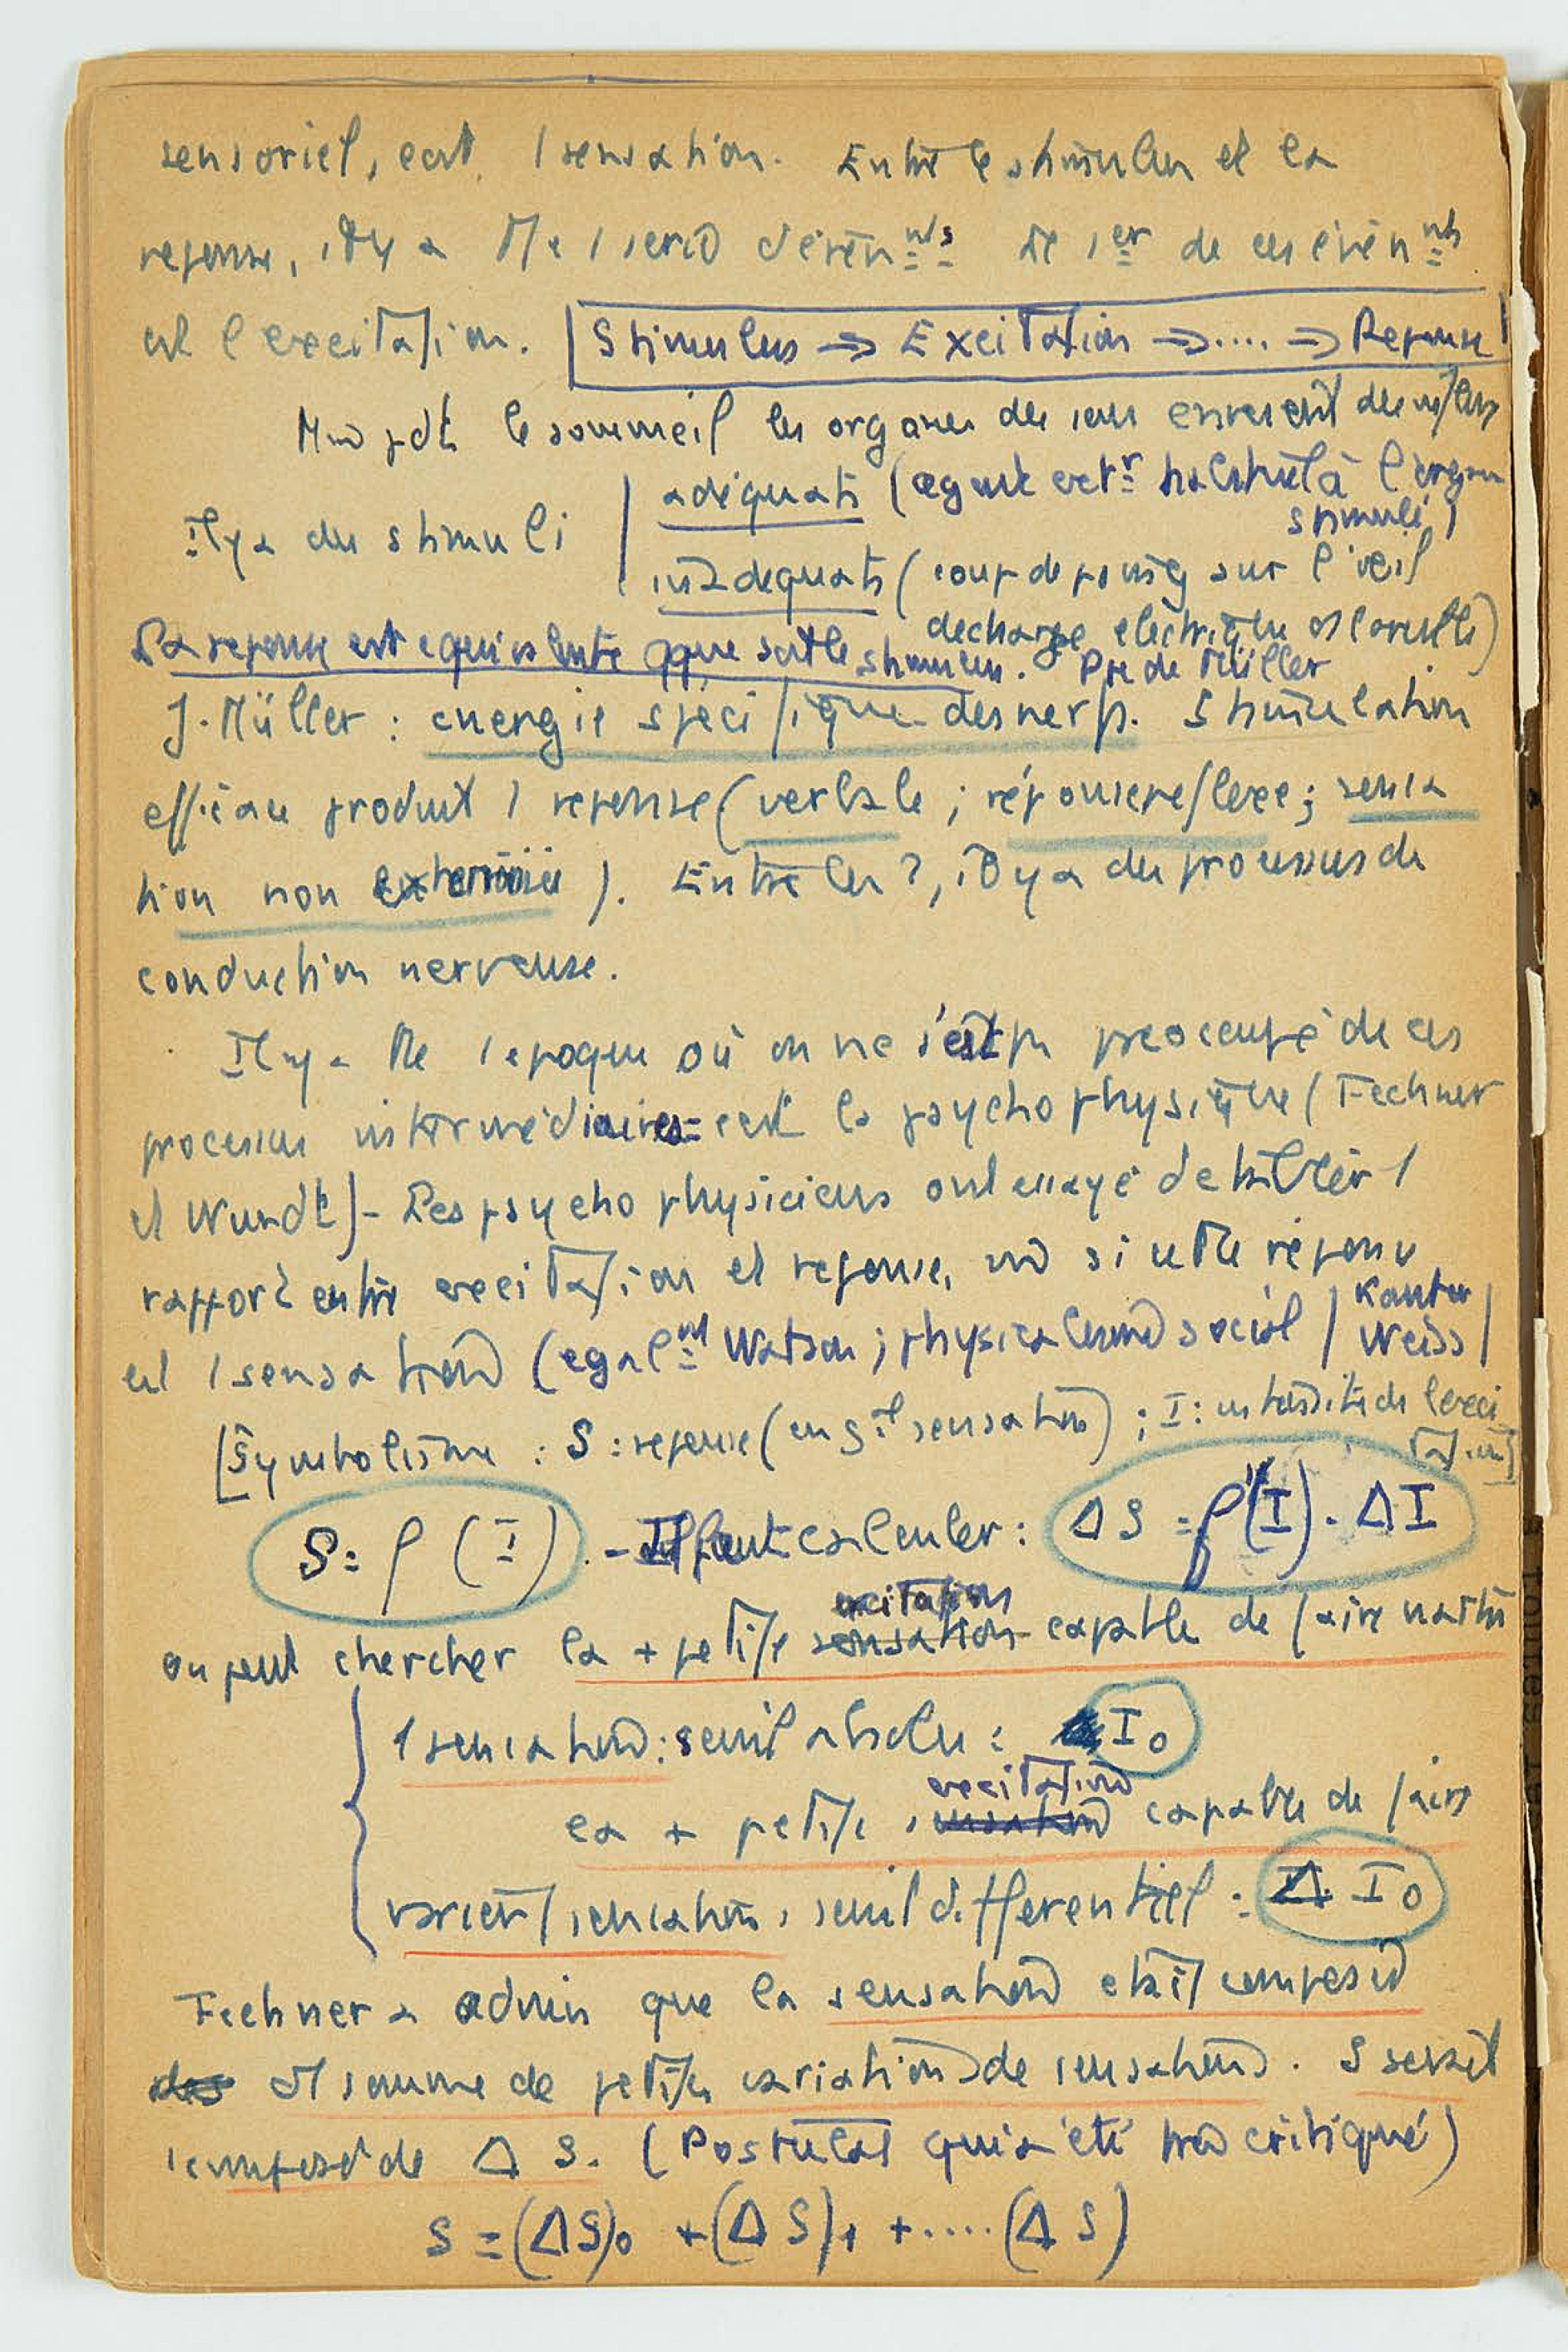 sensoriel, c'est 1 sensation. Entre le stimulus et la
reponse, il y a tte 1 serie d'évén nts Le 1er de ces évén nts
est l'excitation. Stimulus ⇒ Excitation ⇒ .... ⇒ Reponse
pdt le sommeil les organes des sens envoient des
Il y a des stimuli
adéquats (agent ext r habituel à l'organe
stimulé)
inadequats (coup de poing sur l'œil
decharge electrique
La reponse est equivalente qque soit le stimulus. Ppe de Müller
J. Müller : energie specifique des nerfs. Stimulation
efficace produit 1 reponse (verbale ; réponse reflexe ; sensa
tion non exteriorisée). Entre les 2, il y a des processus de
conduction nerveuse.
Il y a tte 1 epoque où on ne s'est pas preoccupé de ces
processus intermédiaires = c'est la psychophysique (Fechner
et Wundt) - Les psychophysiciens ont essayé d'etablir 1
rapport entre excitation et reponse, si cette réponse
est 1 sensation (egal nt Watson ; physicalisme social / Kantor
Weiss /
[Symbolisme : S : reponse (en gal sensation) ; I : intensité de l'exci
tation]
S = f (I) . - Il faut calculer : Δ S = f'(I) . Δ I
excitation
on peut chercher la + petite sensation capable de faire naitre
1 sensation : seuil absolu : I0
excitation
la + petite sensation capable de faire
varier 1 sensation, seuil differentiel : Δ I0
Fechner a admis que la sensation etait composée
des et somme de petites variations de sensations. S serait
composé de Δ S. (Postulat qui a été très critiqué)
S = (Δ S)0 + (Δ S)1 + ..... (Δ S)